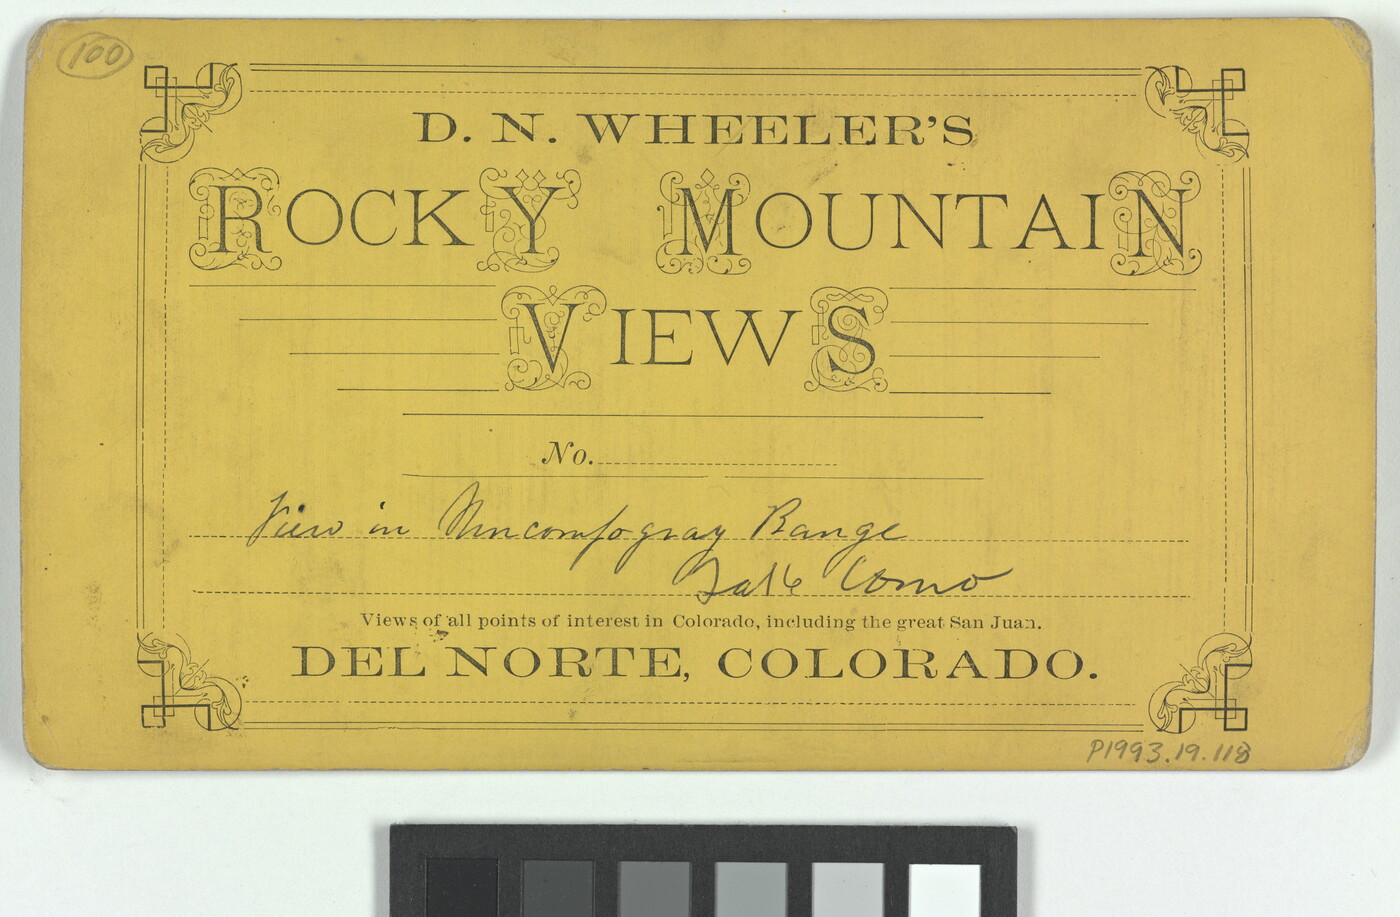 100
D. N. WHEELER'S
ROCKY MOUNTAIN
VIEWS
No.
View in Uncompogray Range
Lake Como
Views of all points of interest in Colorado, including the great San Juan.
DEL NORTE, COLORADO.
P1993.19.118